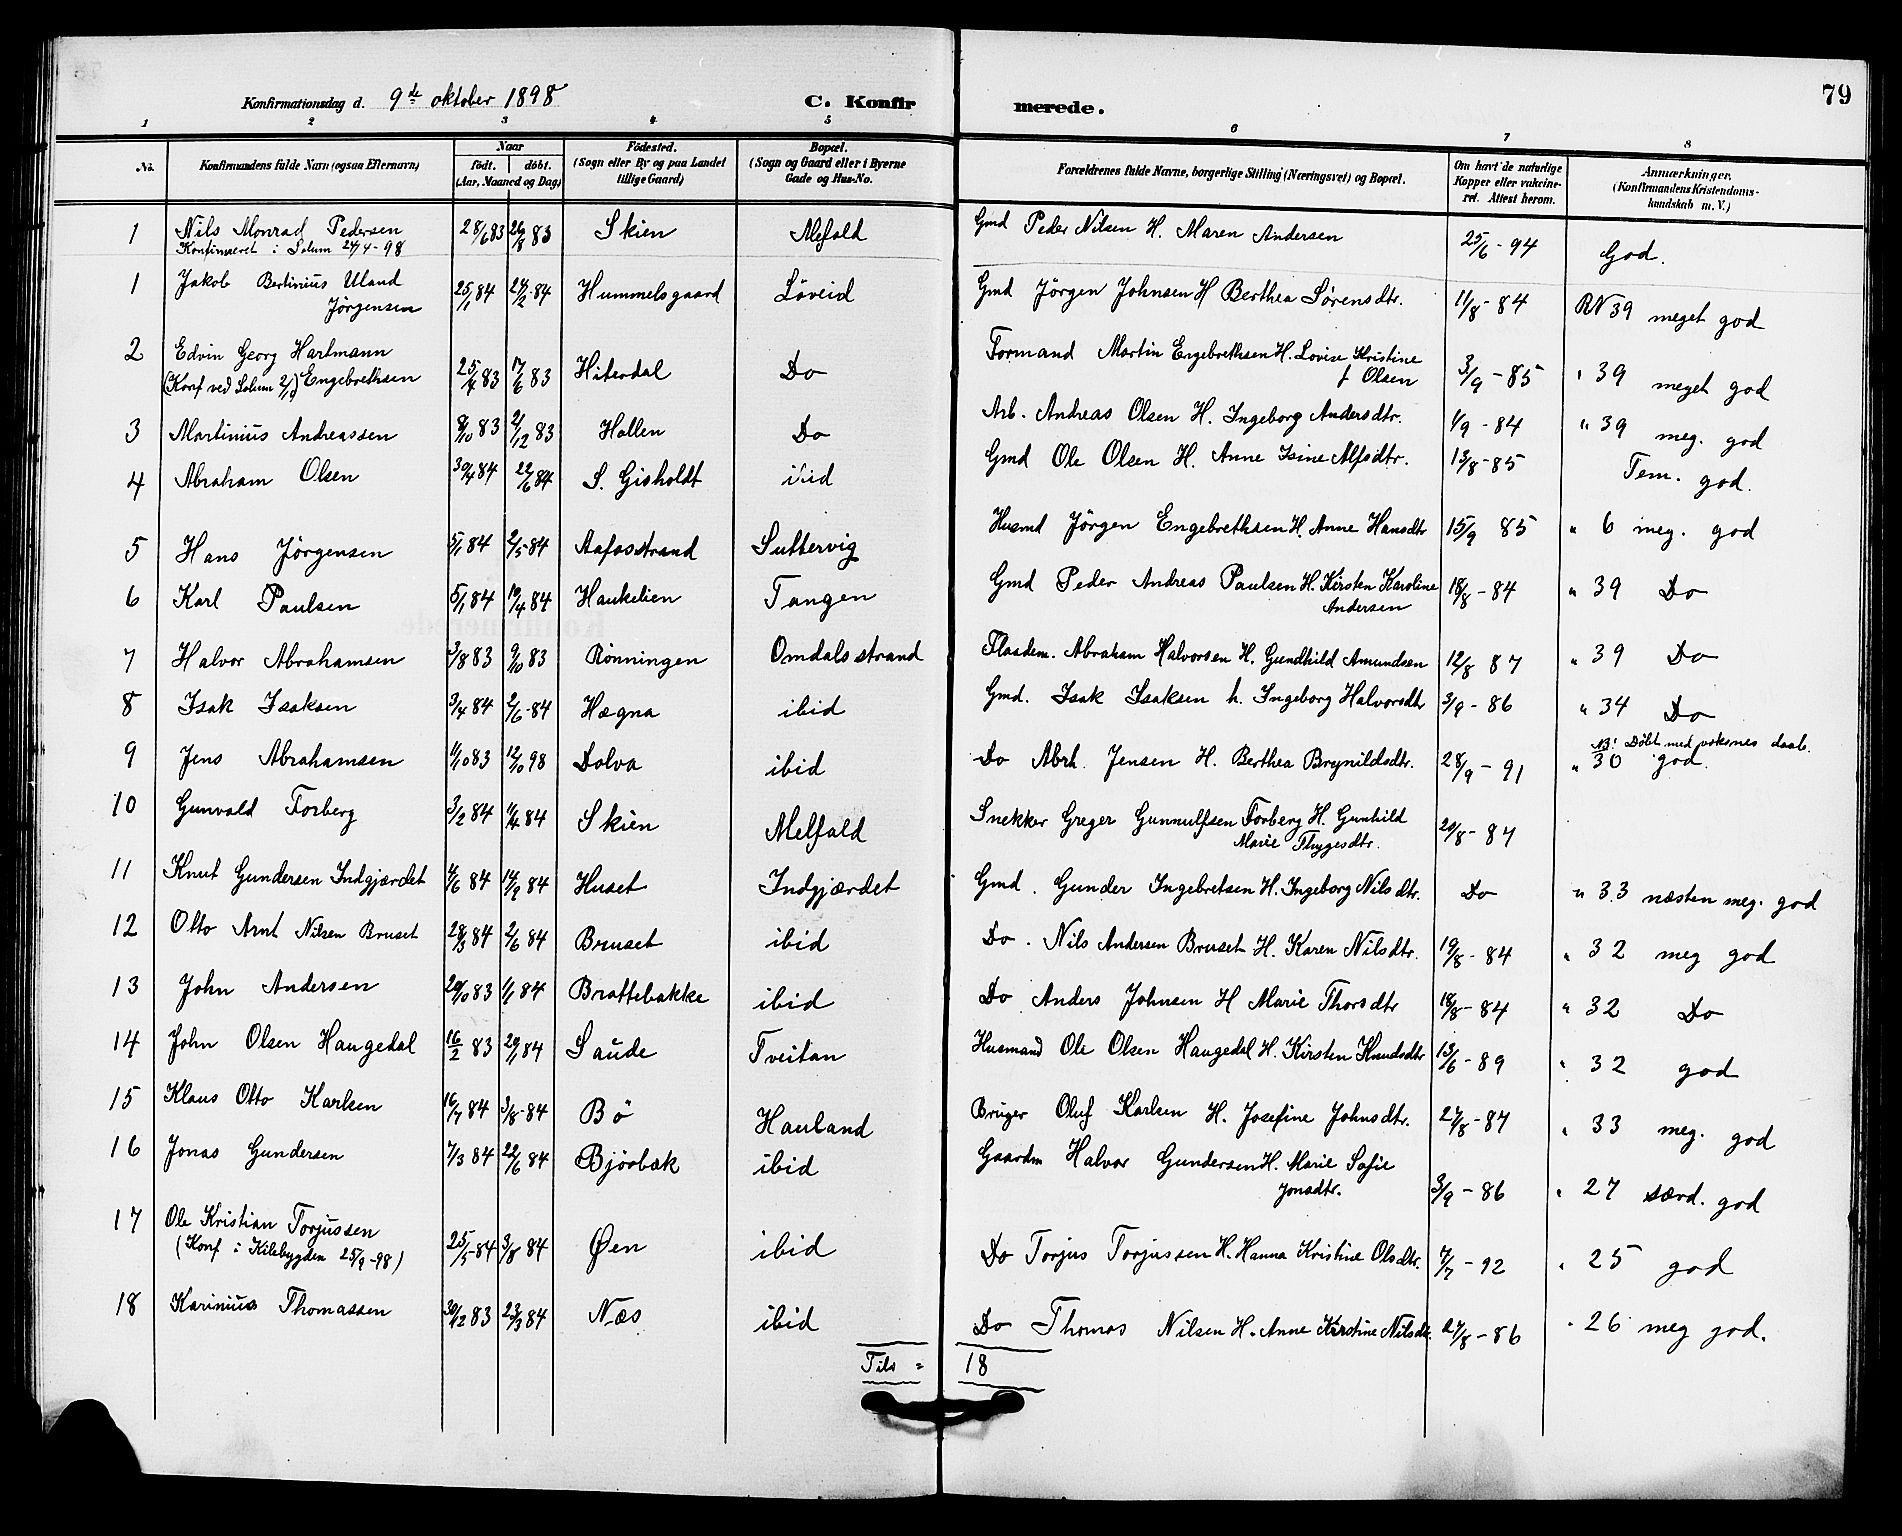 79
Konfirmationsdag d. 9de oktober 1898 C. Konfirmerede.
1 2 3 4 5 6 7 8
No. Konfirmandens fulde Navn (ogsaa Efternavn) Naar født. døbt. (Aar, Maaned og Dag) Fødested. (Sogn eller By og paa Landet tillige Gaard) Bopæl. (Sogn og Gaard eller i Byerne Gade og Hus-No. Forældrenes fulde Navne, borgerlige Stilling (Næringsvei) og Bopæl. Om havt de naturlige Kopper eller vakcineret. Attest herom. Anmærkninger. (Konfirmandens Kristendomskundskab m. V.)
1 Nils Monrad Pedersen 28/6 83 26/8 83 Skien Melfald Gmd Peder Nilsen H. Maren Andersen 25/6 - 94 God.
Konfirmeret i Solum 24/4 - 98
1 Jakob Bertinius Uland Jørgensen 25/1 84 24/2 - 84 Hummelsgaard Løveid Gmd Jørgen Johnsen H Berthea Sørensdtr. 11/8 - 84 RN 39 meget god
2 Edvin Georg Hartmann Engebrethsen 25/4 83 17/6 83 Hiterdal Do Formand Martin Engebrethsen H. Lovise Kristine f Olsen 3/9 - 85 " 39 meget god
(Konf ved Solum
3 Martinius Andreassen 8/10 83 2/12 83 Hollen Do Arb. Andreas Olsen H. Ingeborg Andersdtr. 1/9 - 84 " 39 meg. god
4 Abraham Olsen 30/4 84 22/6 84 S. Gisholdt ibid Gmd Ole Olsen H. Anne Isine Alfsdtr. 13/8 - 85 Tem. god.
5 Hans Jørgensen 5/1 84 2/5 - 84 Aafosstrand Suttervig Husmd Jørgen Engebrethsen H. Anne Hansdtr 15/9 85 " 6 meg. god
6 Karl Paulsen 5/1 84 19/4 84 Haukelien Tangen Gmd Peder Andreas Paulsen H. Kirsten Karoline Andersen 18/8 - 84 " 39 Do
7 Halvor Abrahamsen 3/8 83 9/10 83 Rønningen Omdalsstrand Flaadem. Abraham Halvorsen H. Gundhild Amundsen 12/8 87 " 39 Do
8 Isak Isaksen 3/4 84 2/6 - 84 Hægna ibid Gmd. Isak Isaksen h. Ingeborg Halvorsdtr 3/9 - 86 " 34 Do
9 Jens Abrahamsen 11/10 83 12/10 98 Dolva ibid Do Abrh. Jensen H. Berthea Brynildsdtr. 28/9 - 91 " 30 god. NB! Døbt med voksnes daab.
10 Gunvald Forberg 3/2 84 11/4 84 Skien Melfald Snekker Greger Gunnulfsen Forberg H. Gunhild Marie Thygesdtr. 20/8 - 87
11 Knut Gundersen Indgjærdet 4/6 84 14/9 84 Huset Indgjærdet Gmd. Gunder Ingebretsen H. Ingeborg Nilsdtr. Do " 33 næsten meg. god
12 Otto Arnt Nilsen Bruset 28/3 84 2/6 84 Bruset ibid Do. Nils Andersen Bruset H. Karen Nilsdtr. 19/8 - 84 " 32 meg god
13 John Andersen 20/10 83 1/1 84 Brattebakke ibid Do Anders Johnsen H Marie Thorsdtr 18/8 - 84 " 32 Do
14 John Olsen Haugedal 16/2 83 29/1 84 Saude Tveitan Husmand Ole Olsen Haugedal H. Kirsten Knudsdtr 13/6 - 89 " 32 god
15 Klaus Otto Karlsen 16/7 84 3/8 - 84 Bø Hauland Bruger Oluf Karlsen H. Josefine Johnsdtr. 27/8 - 87 " 33 meg. god
16 Jonas Gundersen 7/3 84 22/6 84 Bjørbæk ibid Gaardm Halvor Gundersen H. Marie Sofie Jonsdtr. 3/9 - 86 " 27 særd. god
17 Ole Kristian Torjussen 25/5 - 84 3/8 84 Øen ibid Do Torjus Torjussen H. Hanna Kristine Olsdtr. 7/7 - 92 " 25 god
(Konf i Kilebygden 25/9 - 98)
18 Karinius Thomassen 30/12 83 23/3 84 Næs ibid Do Thomas Nilsen H. Anne Kirstine Nilsdtr. 27/8 - 86 " 26 meg god.
Tils = 18